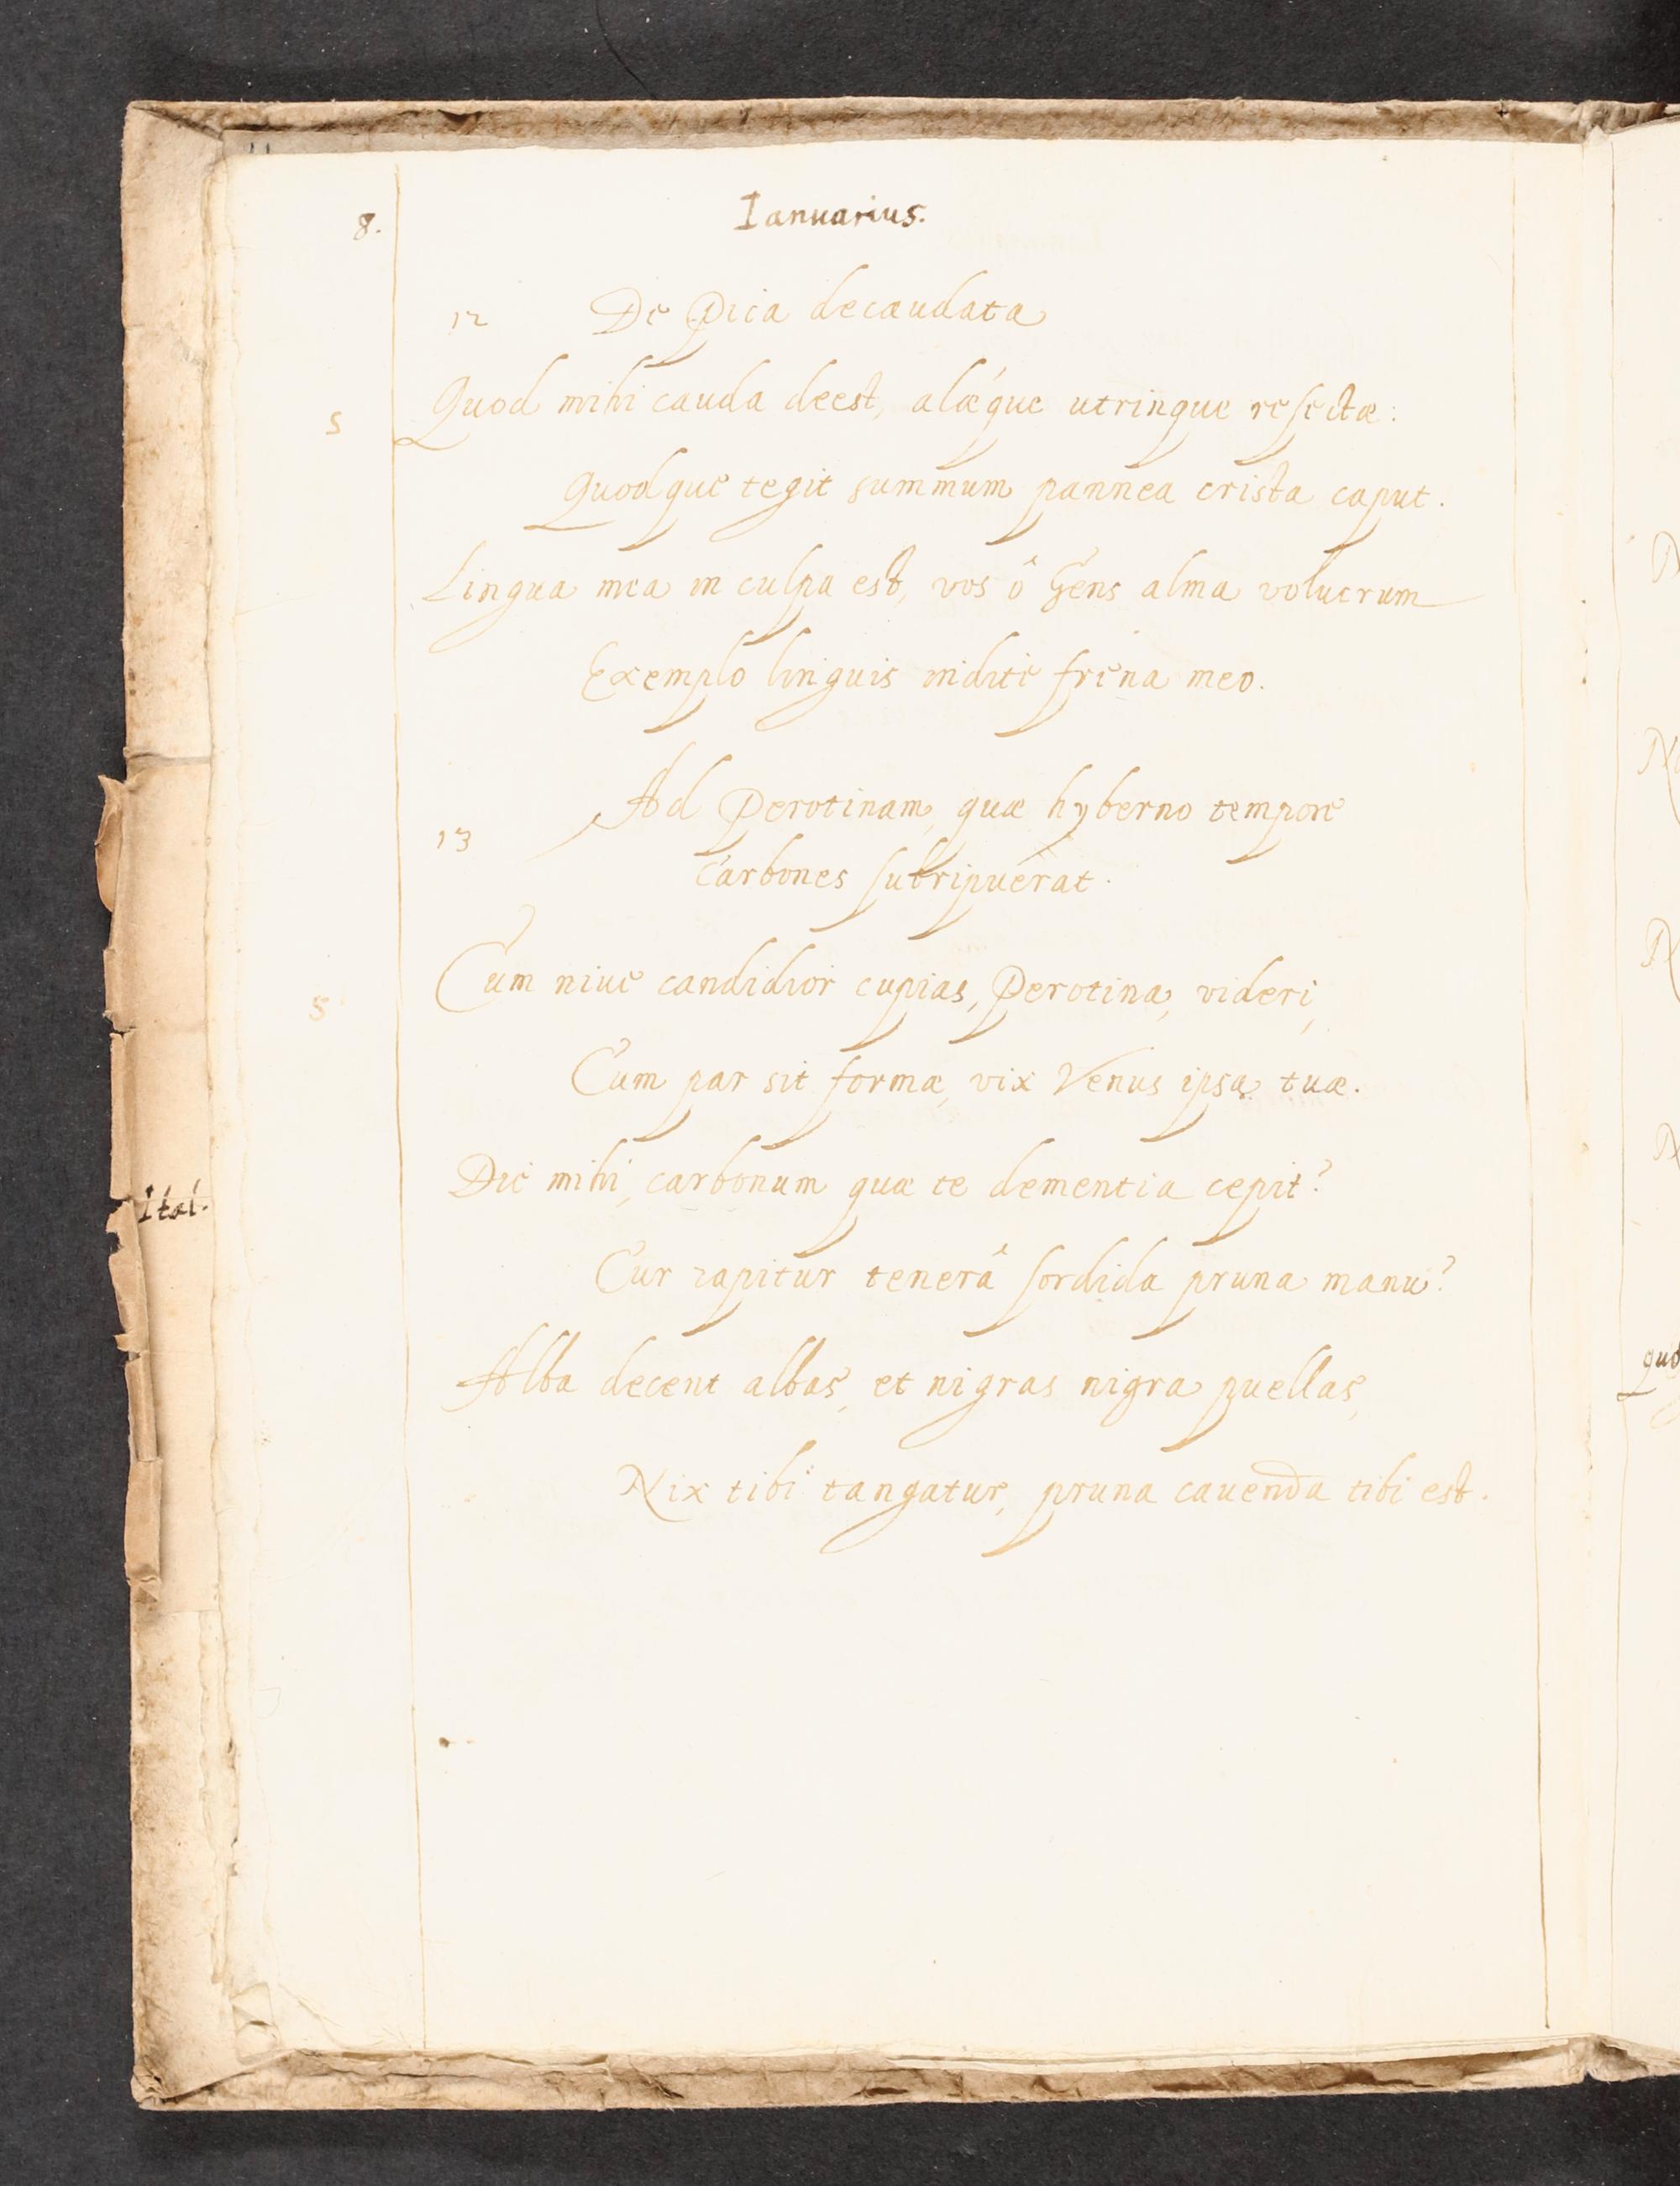 8.
Ianuarius.
12 De Pica decaudata
5 Quod mihi cauda deest, alæque utringue resectæ:
Quodque tegit summum pannea crista caput.
Lingua mea in culpa est, vos ô Gens alma volucrum
Exemplo linguis indite frena meo.
13 Ad Perotinam, quæ hyberno tempore
Carbones subripuerat.
5 Cum niue candidior cupias, Perotina, videri,
Cum par sit formæ, vix Venus ipsa, tuæ.
Dic mihi, carbonum quæ te dementia cepit?
Cur rapitur tenerâ sordida pruna manu?
Alba decent albas, et nigras nigra puellas,
Nix tibi tangatur, pruna cauenda tibi est.
Ital.